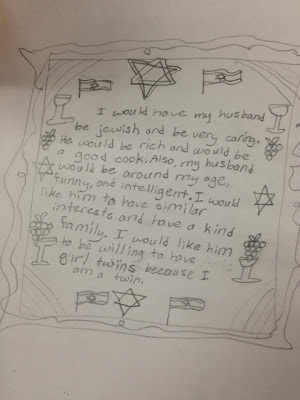 I would have my husband
be jewish and be very caring.
He would be rich and would be
a good cook. Also, my husband
would be around my age,
funny, and intelligent. I would
like him to have similar
interests and have a kind
family. I would like him
to be willing to have
girl twins because I
am a twin.